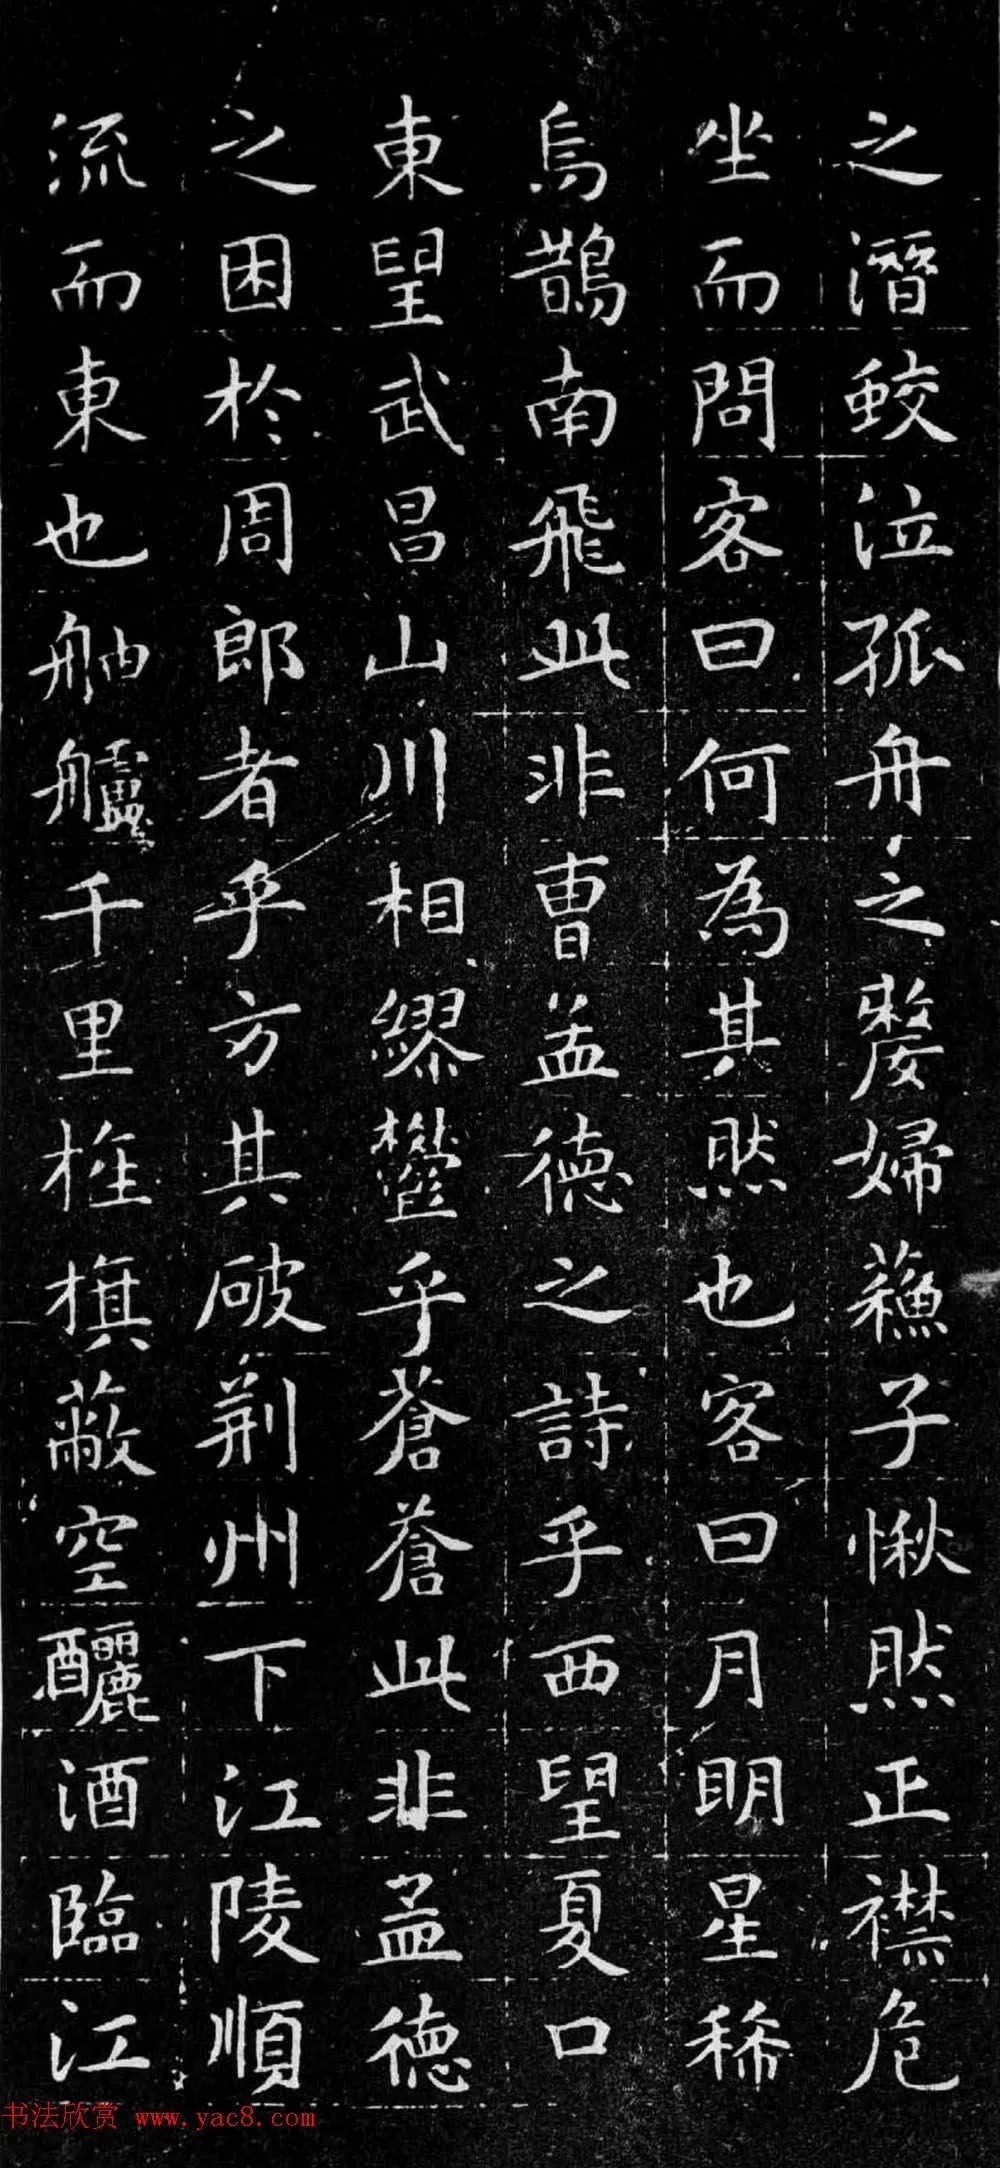 之潛蛟泣孤舟之嫠婦蘓子愀然正襟危
坐而問客曰何為其然也客曰月明星稀
烏鵲南飛此非曹孟德之詩乎西望夏口
東望武昌山川相繆欝乎蒼蒼此非孟德
之困於周郎者乎方其破荆州下江陵順
流而東也舳艫千里旌旗蔽空釃酒臨江
书法欣赏 www.yac8.com